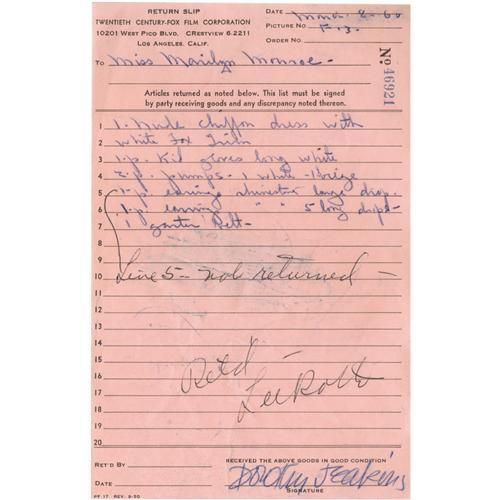 RETURN SLIP
TWENTIETH CENTURY-FOX FILM CORPORATION
10201 WEST PICO BLVD. CRESTVIEW 6-2211
LOS ANGELES, CALIF.
DATE March 8-60
PICTURE No. F-13-
ORDER No.
No. 46921
To Miss Marilyn Monroe-
Articles returned as noted below. This list must be signed
by party receiving goods and any discrepancy noted thereon.
1 1. Nude chiffon dress with
2 white Fox Trim
3 1.p. Kid gloves long white
4 2.p. pumps - 1 white - 1 beige
5 1.p. earings rhinestone large drop.
6 1.p. earings " " 5 long drops-
7 1 garter Belt-
8
9
10 Line 5 - not returned -
11
12
13
14
15 Retd -
16
17
18
19
20
RET'D BY
DATE
RECEIVED THE ABOVE GOODS IN GOOD CONDITION
Dorothy Jeakins
SIGNATURE
PF 17 REV. 9-50